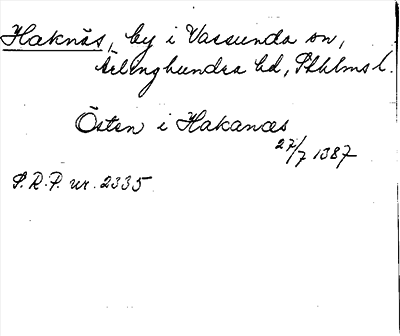 Haknäs, by i Vassunda sn,
Ärlinghundra hd, Sthlms l.
Östen i Hakanæs
27/7 1387
S.R.P. nr. 2335